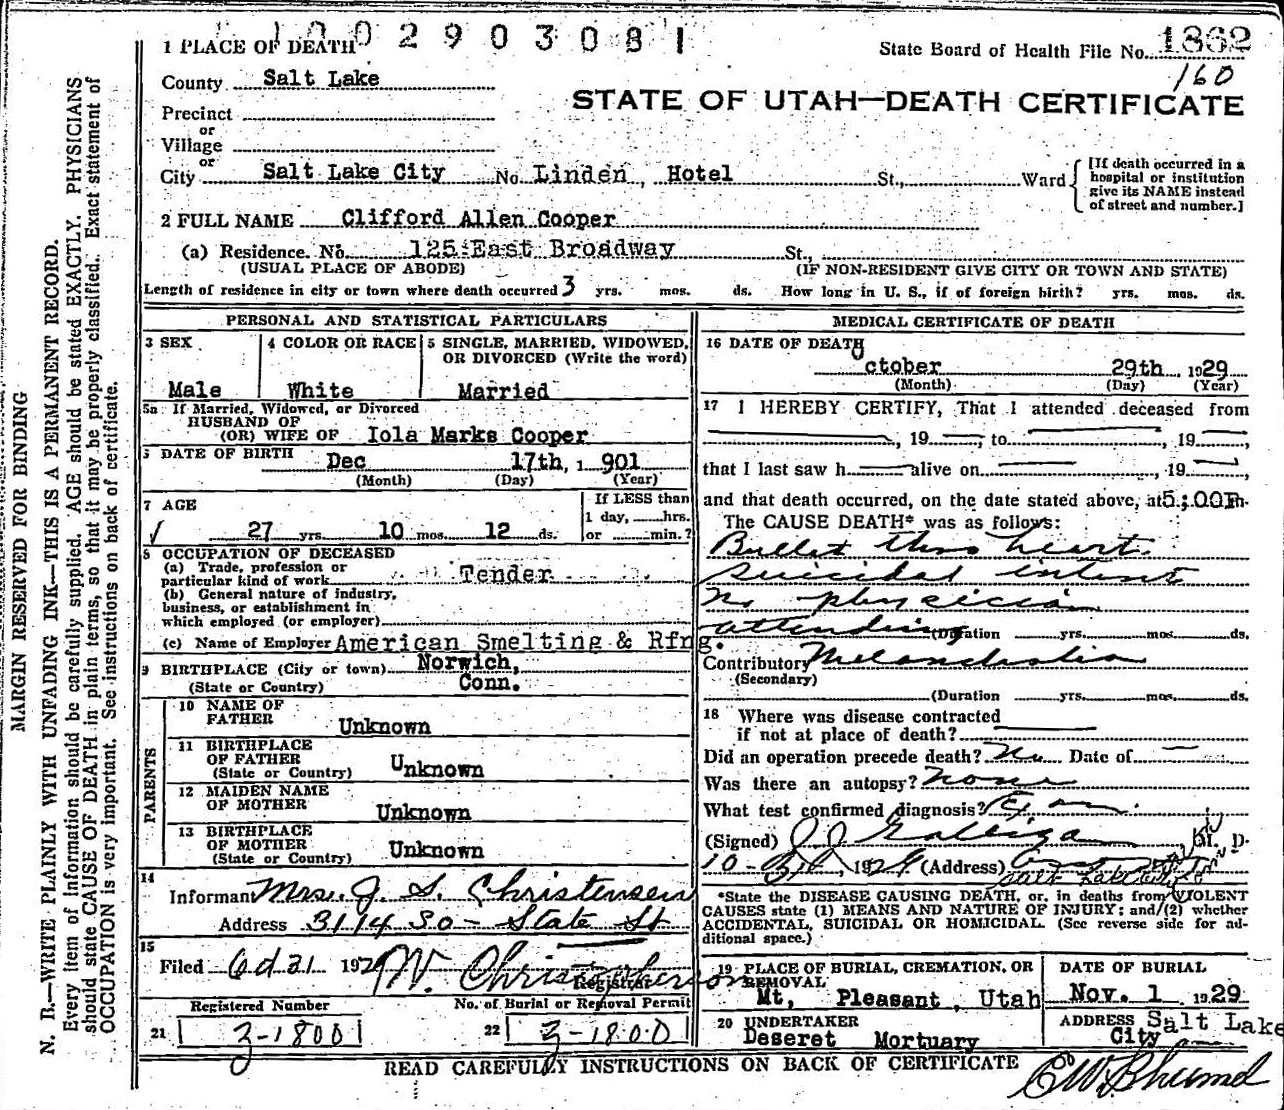 1002903081
1 PLACE OF DEATH
State Board of Health File No. 1862
160
County Salt Lake
STATE OF UTAH—DEATH CERTIFICATE
Precinct
or
Village
or
City Salt Lake City No. Linden, Hotel St., Ward
[If death occurred in a
hospital or institution
give its NAME instead
of street and number.]
2 FULL NAME Clifford Allen Cooper
(a) Residence. No. 125 East Broadway St.,
(USUAL PLACE OF ABODE) (IF NON-RESIDENT GIVE CITY OR TOWN AND STATE)
Length of residence in city or town where death occurred 3 yrs. mos. ds. How long in U. S., if of foreign birth? yrs. mos. ds.
PERSONAL AND STATISTICAL PARTICULARS
3 SEX
Male
4 COLOR OR RACE
White
5 SINGLE, MARRIED, WIDOWED,
OR DIVORCED (Write the word)
Married
5a If Married, Widowed, or Divorced
HUSBAND OF
(OR) WIFE OF Iola Marks Cooper
6 DATE OF BIRTH Dec 17th, 1901
(Month) (Day) (Year)
7 AGE
27 yrs. 10 mos. 12 ds.
If LESS than
1 day, hrs.
or min.?
8 OCCUPATION OF DECEASED
(a) Trade, profession or
particular kind of work Tender
(b) General nature of industry,
business, or establishment in
which employed (or employer)
(c) Name of Employer American Smelting & Rfng.
9 BIRTHPLACE (City or town) Norwich,
(State or Country) Conn.
PARENTS
10 NAME OF
FATHER Unknown
11 BIRTHPLACE
OF FATHER
(State or Country) Unknown
12 MAIDEN NAME
OF MOTHER Unknown
13 BIRTHPLACE
OF MOTHER
(State or Country) Unknown
14
Informant Mrs. J. S. Christensen
Address 3114 So- State St
15
Filed Oct 31 1929 W. Christopherson
Registrar
Registered Number
21 3-1800
No. of Burial or Removal Permit
22 3-1800
MEDICAL CERTIFICATE OF DEATH
16 DATE OF DEATH
October 29th 1929
(Month) (Day) (Year)
17 I HEREBY CERTIFY, That I attended deceased from
, 19 to , 19 ,
that I last saw h alive on , 19
and that death occurred, on the date stated above, at 5:00P.m.
The CAUSE DEATH* was as follows:
Bullet thro heart
suicidal intent
No physician
attending
(Duration yrs. mos. ds.
Contributory Melancholia
(Secondary)
(Duration yrs. mos. ds.
18 Where was disease contracted
if not at place of death?
Did an operation precede death? No Date of —
Was there an autopsy? none
What test confirmed diagnosis?
(Signed) J J Galligan M. D.
10-30, 1929 (Address)
Salt Lake City
*State the DISEASE CAUSING DEATH, or, in deaths from VIOLENT
CAUSES state (1) MEANS AND NATURE OF INJURY; and (2) whether
ACCIDENTAL, SUICIDAL OR HOMICIDAL. (See reverse side for ad-
ditional space.)
19 PLACE OF BURIAL, CREMATION, OR
REMOVAL
Mt, Pleasant, Utah
DATE OF BURIAL
Nov. 1 1929
20 UNDERTAKER
Deseret Mortuary
ADDRESS Salt Lake
City
READ CAREFULLY INSTRUCTIONS ON BACK OF CERTIFICATE
MARGIN RESERVED FOR BINDING
N. B.—WRITE PLAINLY WITH UNFADING INK—THIS IS A PERMANENT RECORD.
Every item of Information should be carefully supplied. AGE should be stated EXACTLY. PHYSICIANS
should state CAUSE OF DEATH in plain terms, so that it may be properly classified. Exact statement of
OCCUPATION is very important. See instructions on back of certificate.